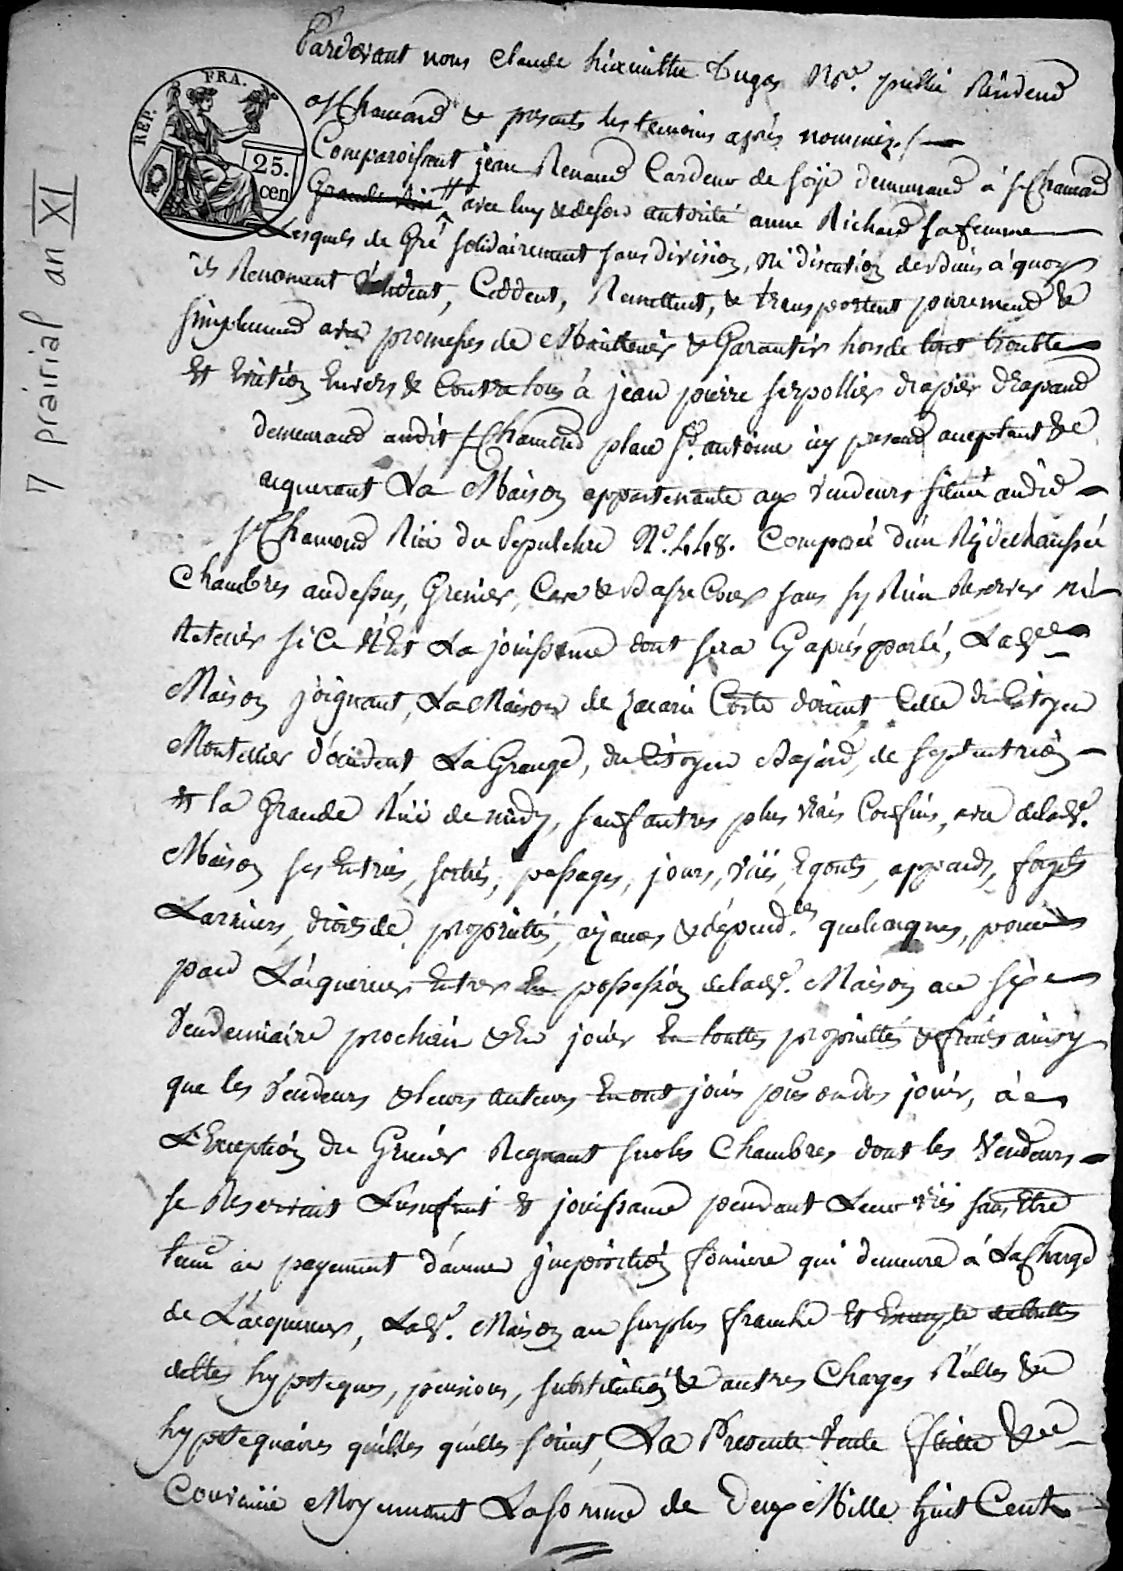 7 prairial an XI
REP. FRA.
25. cen
Pardevant nous Claude hiacinthe Dugas Nore. public Residend
a St Chamond & presents les temoins après nommés /
Comparoissent jean Renaud Cardeur de soye demeurand à St Chamond
Grande Rüe # avec luy & de son autorité anne Richard sa femme
Lesquels de Gré solidairement sans division, ni discution de droits à quoy
ils Renoncent Vendent, Ceddent, Remettent, & transportent purement &
simplement avec promesses de Maintenir & Garantir hors de tout trouble
Et Eviction Envers & Contre tous à jean pierre serpollier drapier drapand
demeurand audit St Chamond place St. antoine icy presend acceptant &
acquerant La Maison appartenante aux Vendeurs située audit
St Chamond Rüe du Sepulchre No. 448. Composée d'un Rez de chaussée
Chambres audessus, Grenier, Cave & basse Cour sans sy Rien Reserver ni
Retenir si ce N'Est La jouissance dont sera Cy après parlé, Lade
Maison joignant, La Maison de Coste d'orient Celle du Citoyen
Montellier d'occident, La Grange, du Citoyen de septentrion
Et la Grande Rüe de midy, sauf autres plus Vrais Confins, avec de lade.
Maison ses Entrées, sorties, passages, jours, Vües, Egouts, appends,
Larmiers, droits de proprietté, aizances & dépendces quelconques, pour
par L'acquereur Entrer En possession de lade. Maison au six
Vendemiaire prochain & En jouir En toutte proprietté & fruits ainsy
que les Vendeurs & leurs auteurs En ont joui pu ou du jouir, à
L'Exception du Grenier Regnant sur les Chambres dont les Vendeurs
se Reservent L'usufruit & jouissance pendant Leur Vie sans Etre
tenu au payement d'aucune imposition fonciere qui demeure à La Charge
de L'acquereur, Lade. Maison au surplus franche Et Exempte de touttes
dettes hypoteques, pensions, substitution & autres Charges Réelles &
hypotequaires quelles quelles soient, La Presente Vente faitte &
Convenüe Moyennant La somme de Deux Mille huit Cent